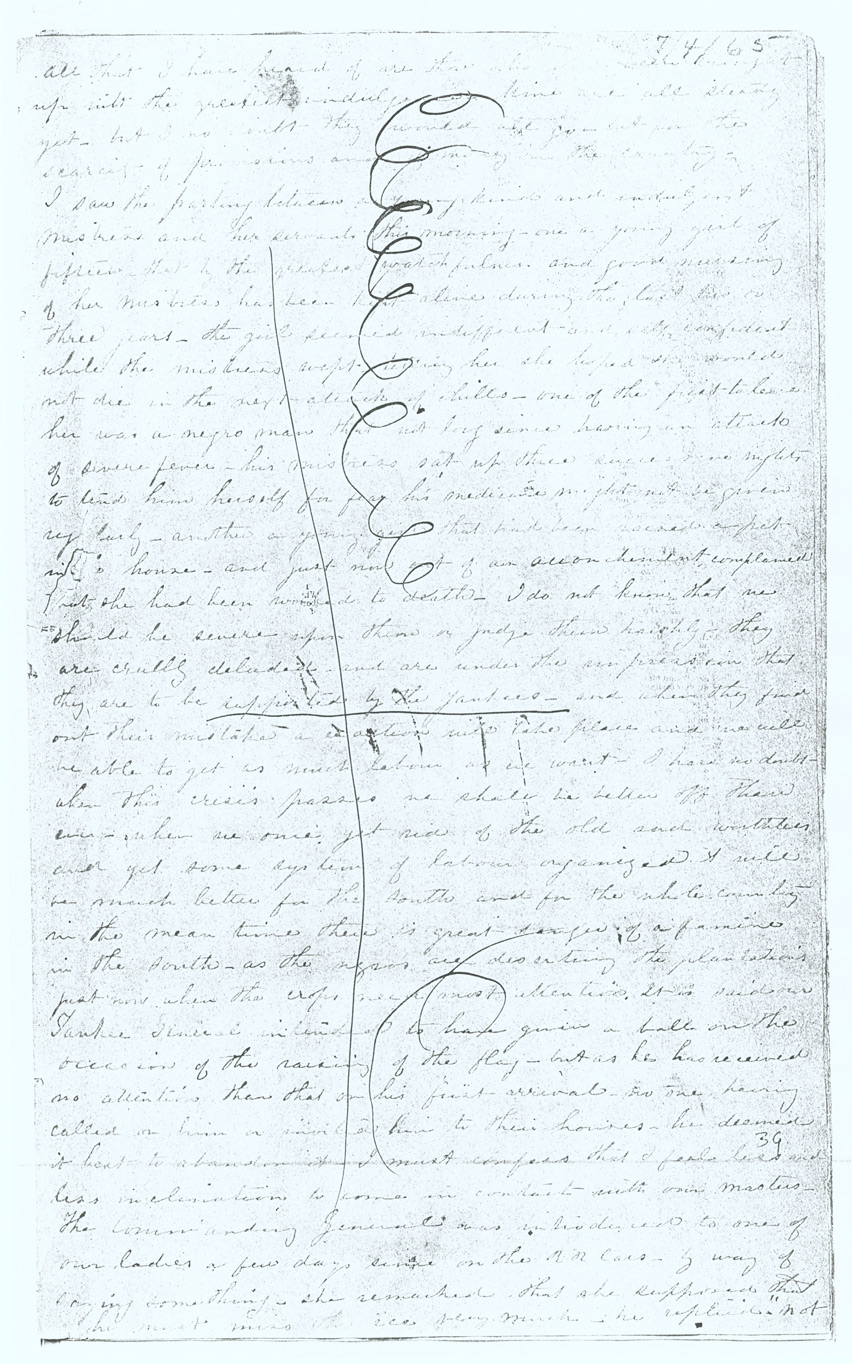 7/4/65
all that I have heard of are those
up with the greatest indulgence mine are all steady
yet - but I no doubt they would all go - but for the
scarcity of provisions and money in the country -
I saw the parting between a young kind and indulgent
mistress and her servants this morning - one a young girl of
fifteen - that by the greatest watchfulness and good nursing
of her mistress has been kept alive during the last two or
three years - the girl seemed indifferent and self confident
while the mistress wept telling her she hoped she would
not die in the next attack of chills - one of the first to leave
her was a negro man that not long since having an attack
of severe fever - his mistress sat up three successive nights
to tend him herself for fear his medicine might not be given
regularly - another a young girl that had been raised a pet
in the house - and just now out of an accouchement, complained
that she had been worked to death - I do not know that we
should be severe upon them or judge them harshly - they
are cruelly deluded - and are under the impression that
they are to be supported by the yankees - and when they find
out their mistake a reaction will take place and we will
be able to get as much labour as we want - I have no doubt
when this crisis passes we shall be better off than
ever - when we once get rid of the old and worthless
and get some system of labour organized it will
be much better for the South and for the whole country
in the mean time there is great danger of a famine
in the South - as the negros are deserting the plantations
just now when the crops need most attention. It is said our
Yankee General intended to have given a ball on the
occasion of the raising of the flag - but as he has received
no attention than that on his first arrival - no one having
called on him or invited him to their houses - he deemed
39
it best to abandon it - I must confess that I feel less and
less inclination to come in contact with our masters -
The Commanding General was introduced to one of
our ladies a few days since on the RR Cars - by way of
saying something - she remarked that she supposed that
he must miss the ice very much - he replied "not